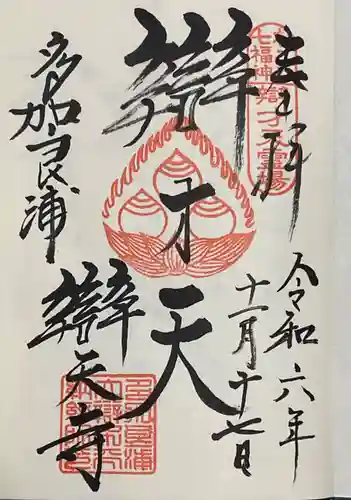 奉拝
七福神辯才天霊場
令和六年
十一月十七日
辯才天
多加良浦
辯天寺